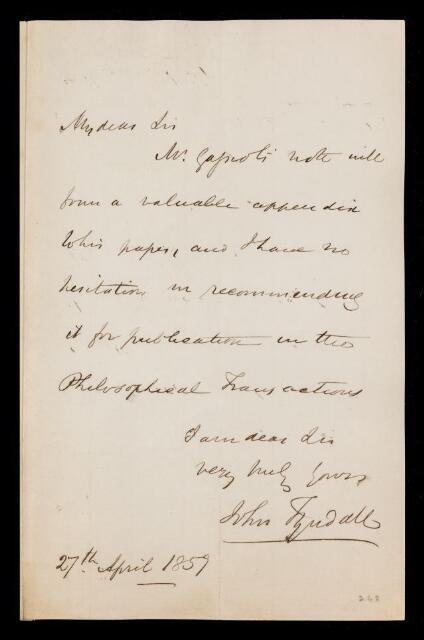 My dear Sir
Mr. Gassiot's note will
form a valuable appendix
to his paper, and I have no
hesitation in recommending
it for publication in the
Philosophical Transactions
I am dear Sir
very truly yours
John Tyndall
27th April 1859
268